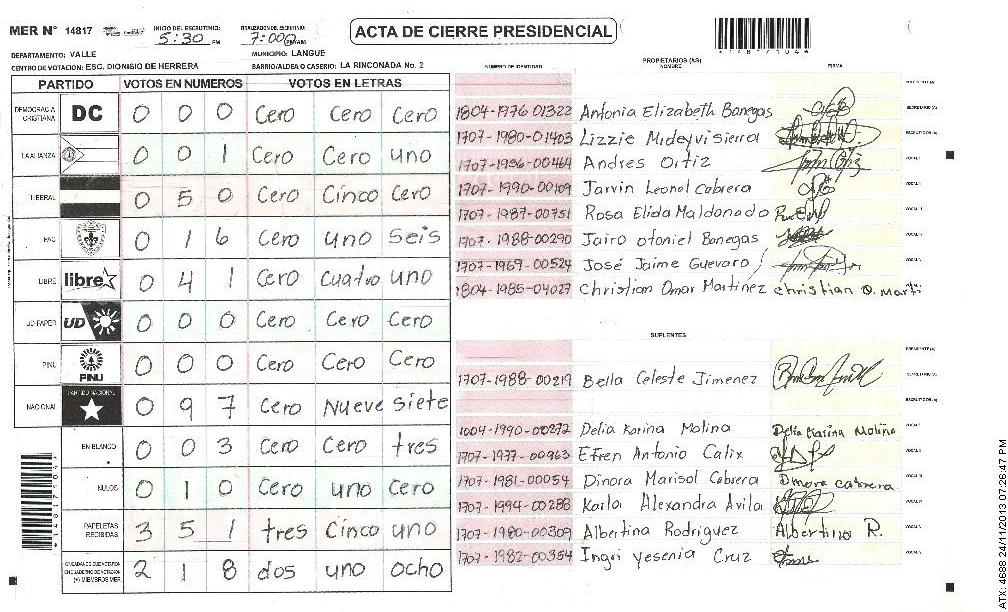 MER N° 14817 INICIO DEL ESCRUTINIO: 5:30 PM FINALIZACION DEL ESCRUTINIO: 7:00 PM/AM
ACTA DE CIERRE PRESIDENCIAL
DEPARTAMENTO: VALLE MUNICIPIO: LANGUE
CENTRO DE VOTACION: ESC. DIONISIO DE HERRERA BARRIO/ALDEA O CASERIO: LA RINCONADA No. 2
PARTIDO VOTOS EN NUMEROS VOTOS EN LETRAS
DEMOCRACIA CRISTIANA DC 0 0 0 Cero Cero Cero
LA ALIANZA 0 0 1 Cero Cero uno
LIBERAL 0 5 0 Cero Cinco Cero
PAC 0 1 6 Cero uno Seis
LIBRE libre 0 4 1 Cero Cuatro uno
UD-FAPER UD 0 0 0 Cero Cero Cero
PINU PINU 0 0 0 Cero Cero Cero
NACIONAL PARTIDO NACIONAL 0 9 7 Cero Nueve Siete
EN BLANCO 0 0 3 Cero Cero tres
NULOS 0 1 0 Cero uno Cero
PAPELETAS RECIBIDAS 3 5 1 tres Cinco uno
(+) MIEMBROS MER 2 1 8 dos uno ocho
PROPIETARIOS (AS)
NUMERO DE IDENTIDAD NOMBRE FIRMA
PRESIDENTE (A)
1804-1976 01322 Antonia Elizabeth Banegas SECRETARIO (A)
1707-1980-01403 Lizzie Mideyvi sierra ESCRUTADOR (A)
1707-1956-00464 Andres Ortiz
1707-1990-00109 Jarvin Leonel Cabrera
1707-1987-00751 Rosa Elida Maldonado
1707-1988-00290 Jairo otoniel Banegas
1707-1969-00524 José Jaime Guevara
1804-1985-04027 Christian Omar Martinez christian O. Mart
SUPLENTES
PRESIDENTE (A)
1707-1988-00219 Bella Celeste Jimenez SECRETARIO (A)
ESCRUTADOR (A)
1004-1990-00272 Delia Karina Molina Delia Karina Molina
1707-1977-00963 Efren Antonio Calix
1707-1981-00054 Dinora Marisol Cabrera Dinora cabrera
1707-1994-00288 Karla Alexandra Avila
1707-1980-00309 Albertina Rodriguez Albertina R.
1707-1982-00354 Ingri yesenia Cruz
ATX: 4688 24/11/2013 07:26:47 PM